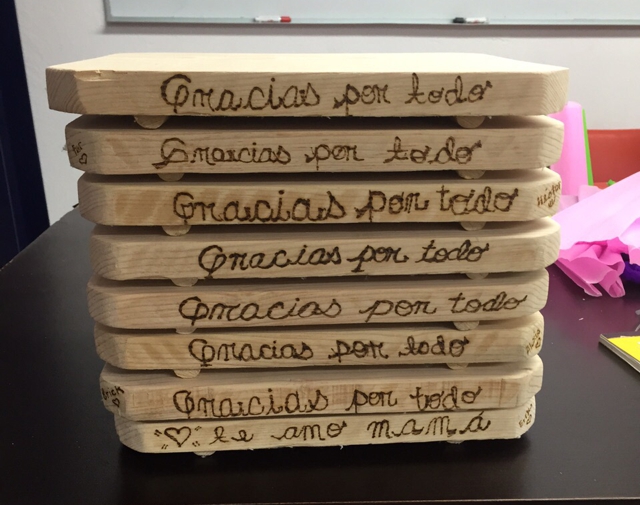 Gracias por todo
Gracias por todo
Gracias por todo
Gracias por todo
Gracias por todo
Gracias por todo
Gracias por todo
te amo mamá